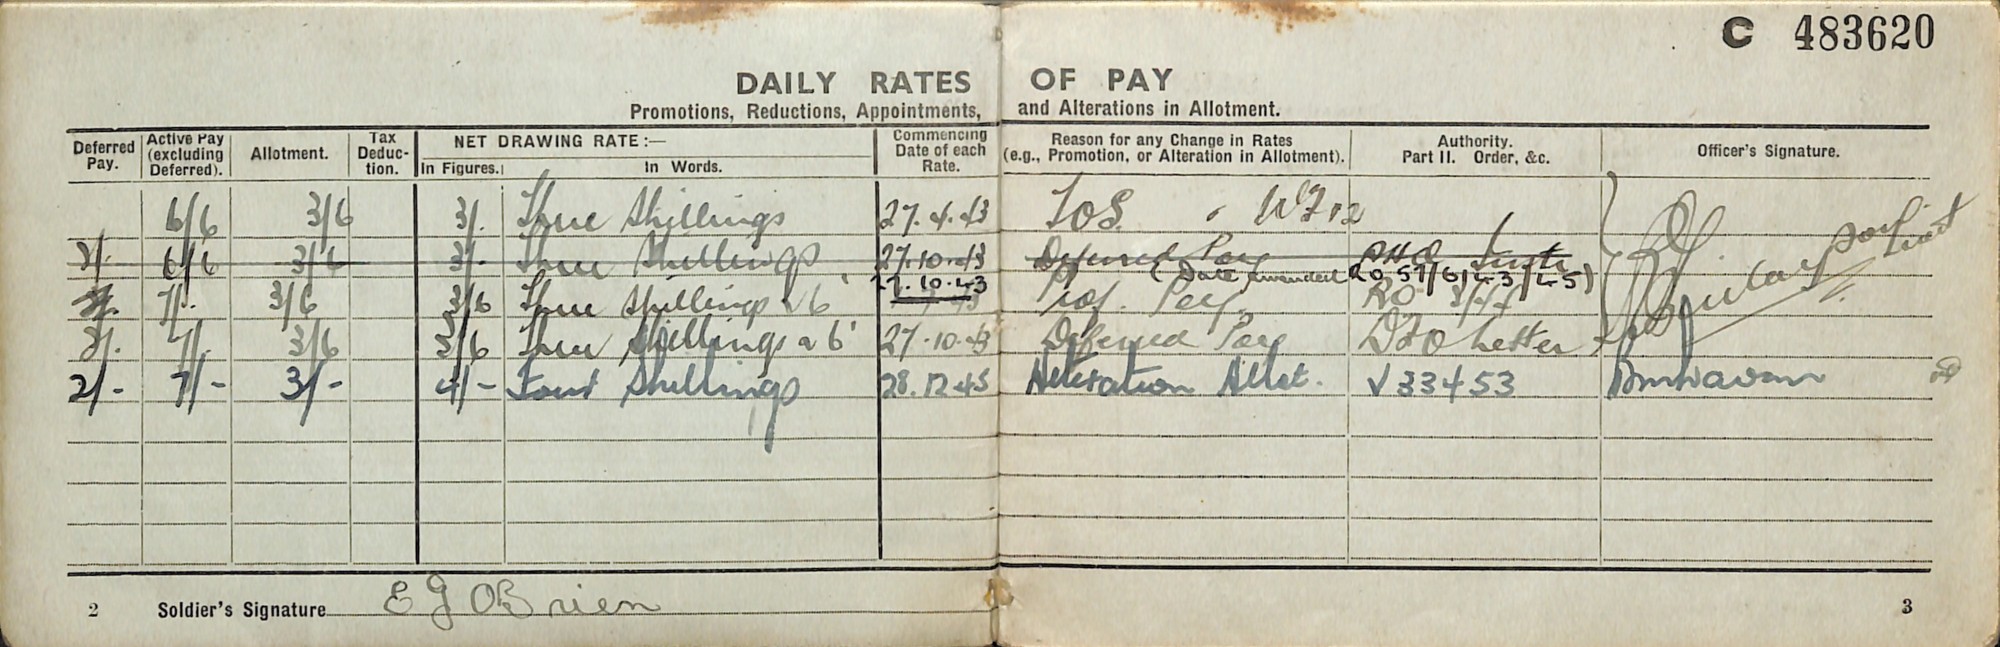 C 483620
DAILY RATES OF PAY
Promotions, Reductions, Appointments, and Alterations in Allotment.
Deferred Pay. Active Pay (excluding Deferred). Allotment. Tax Deduc- tion. NET DRAWING RATE:— In Figures. In Words. Commencing Date of each Rate. Reason for any Change in Rates (e.g., Promotion, or Alteration in Allotment). Authority. Part II. Order, &c. Officer's Signature.
6/6 3/6 3/. Three Shillings 27.4.43 TOS.
2/. 6/6 3/6 3/. Three Shillings 27.10.43 Deferred Pay
(Date amended RO.59/6/43/45)
7/. 3/6 3/6 Three Shillings & 6 27.10.43 Prof. Pay RO
2/. 7/. 3/6 3/6 Three Shillings & 6 27.10.43 Deferred Pay DFO Letter
2/- 7/- 3/- 4/- Four Shillings 28.12.45 Alteration Allot. V33453
2 Soldier's Signature E G OBrien 3